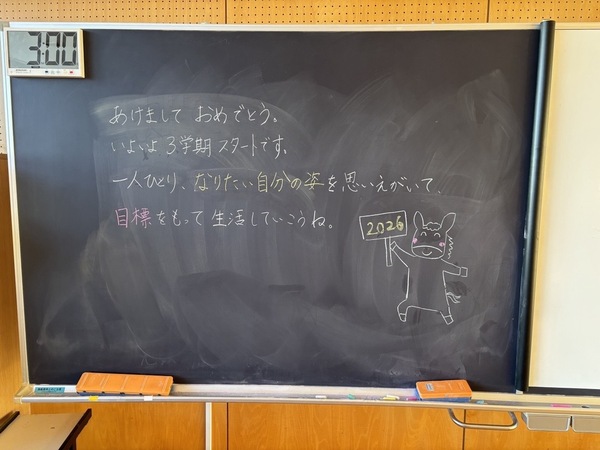 3:00
あけまして おめでとう。
いよいよ 3学期 スタートです。
一人ひとり、なりたい自分の姿を思いえがいて、
目標をもって 生活していこうね。
2026